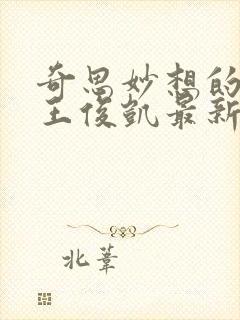 奇思妙想的
王俊凯最新
北葦